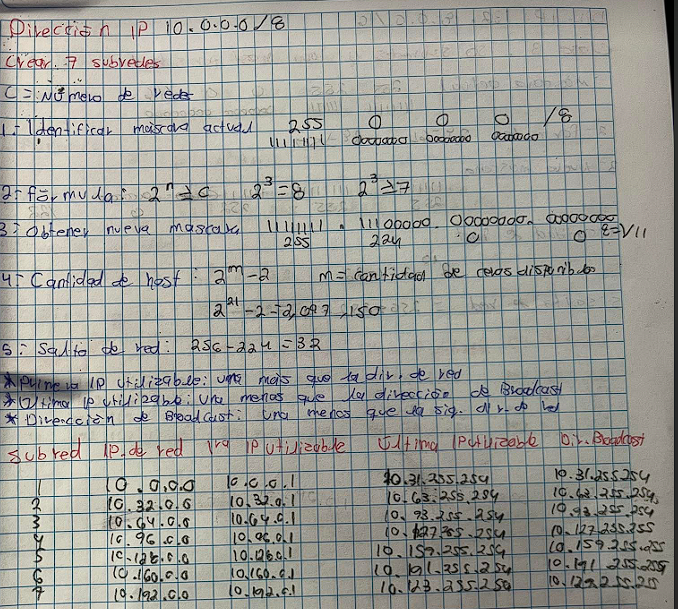 Dirección IP 10.0.0.0/8
Crear 7 subredes
C = Número de redes
1= Identificar máscara actual 255 0 0 0 /8
11111111 00000000 00000000 00000000
2= fórmula: 2^n ≥ C 2^3 = 8 2^3 ≥ 7
3= Obtener nueva mascara 11111111 . 11100000. 00000000. 00000000
255 224 .0 0 /11
4= Cantidad de host: 2^m - 2 m = cantidad de ceros disponibles
2^21 - 2 = 2,097,150
5= Salto de red: 256 - 224 = 32
* Primera IP utilizable: una mais que la dir. de red
* Ultima IP utilizable: una menos que la dirección de Broadcast
* Dirección de Broadcast: una menos que la sig. dir. de red
Subred IP. de red 1ra IP utilizable Última IP utilizable Dir. Broadcast
1 10.0.0.0 10.0.0.1 10.31.255.254 10.31.255.254
2 10.32.0.0 10.32.0.1 10.63.255.254 10.63.255.254
3 10.64.0.0 10.64.0.1 10.93.255.254 10.93.255.254
4 10.96.0.0 10.96.0.1 10.127.255.254 10.127.255.255
5 10.128.0.0 10.128.0.1 10.159.255.254 10.159.255.255
6 10.160.0.0 10.160.0.1 10.191.255.254 10.191.255.255
7 10.192.0.0 10.192.0.1 10.123.255.250 10.122.255.25